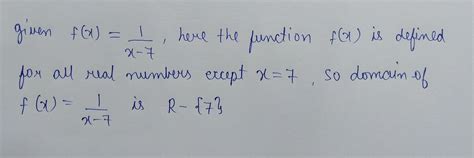 given f(x) = 1/(x-7), here the function f(x) is defined
for all real numbers except x=7, so domain of
f(x) = 1/(x-7) is R-{7}